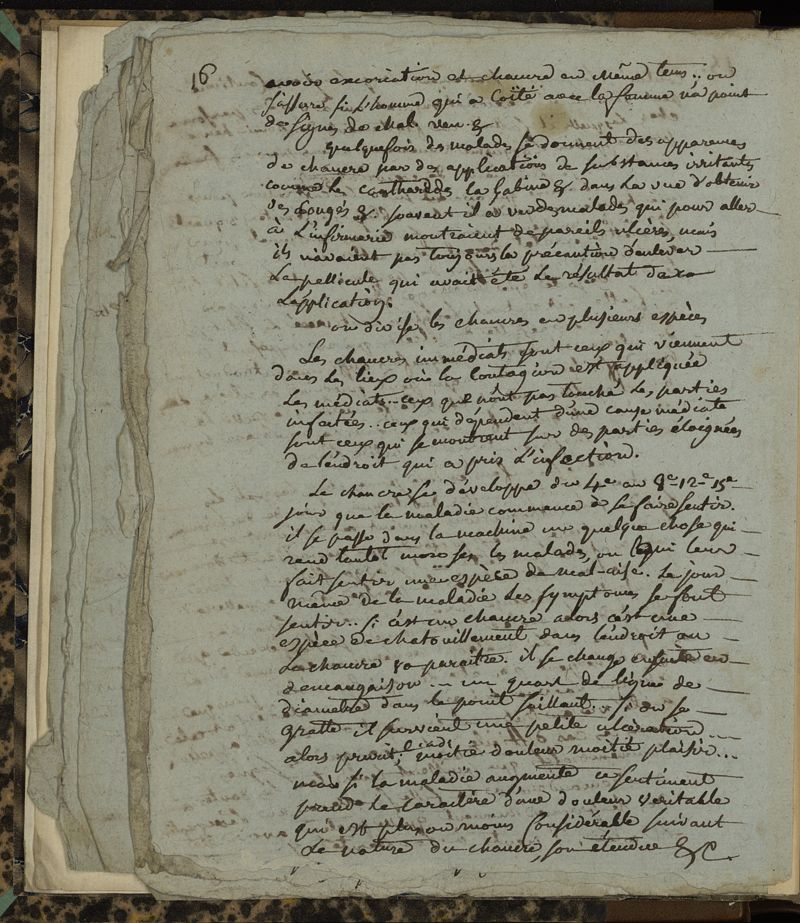 16
avoir excoriation et chancre en même tems.. on
s'assure si l'homme qui a coïté avec la femme n'a point
de signes de mal. ven. &
quelquefois des malades se donnent des apparences
de chancre par des applications de substances irritantes
comme les cantharides la sabine &. dans la vue d'obtenir
des congés &. souvent il a vu des malades qui pour aller
à l'infirmerie montraient de pareils ulcères, mais
ils n'avaient pas toujours la précaution d'enlever
la pellicule qui avait été le résultat de
l'application.
on divise les chancres en plusieurs espèces
Les chancres immédiats sont ceux qui viennent
dans les lieux où la contagion est appliquée
les médiats.. ceux qui n'ont pas touché les parties
infectées.. ceux qui dépendent d'une cause médiate
sont ceux qui se montrent sur des parties éloignées
de l'endroit qui a pris l'infection.
Le chancre se développe du 4e au 8e 12e 15e
jour que la maladie commence de se faire sentir.
il se passe dans la machine un quelque chose qui
rend tantôt moroses les malades, ou qui leur
fait sentir une espèce de mal-aise. Le jour
même de la maladie les symptomes se font
sentir.. si c'est un chancre alors c'est une
espèce de chatouillement dans l'endroit où
le chancre va paraître. il se change ensuite en
demangaison .. un quart de ligne de
diametre dans le point saillant.. si on se
gratte il survient une petite ulcération...
alors prurit, c'.à.d. moitié douleur moitié plaisir...
mais si la maladie augmente ce sentiment
prend le caractère d'une douleur veritable
qui est plus ou moins considérable suivant
la nature du chancre, son étendue &c.